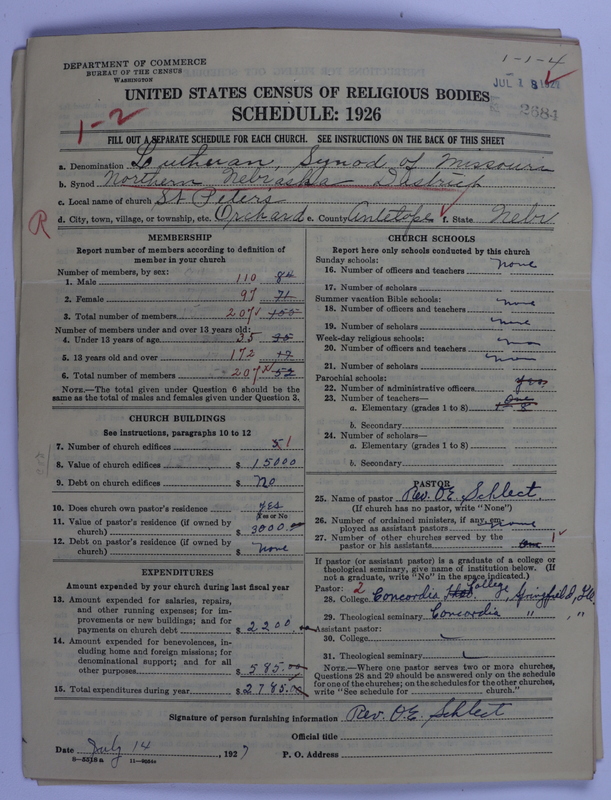 DEPARTMENT OF COMMERCE
BUREAU OF THE CENSUS
WASHINGTON
1-1-4
JUL 18 1927
2684
UNITED STATES CENSUS OF RELIGIOUS BODIES
SCHEDULE: 1926
1-2
FILL OUT A SEPARATE SCHEDULE FOR EACH CHURCH. SEE INSTRUCTIONS ON THE BACK OF THIS SHEET
a. Denomination Lutheran, Synod of Missouri
b. Synod Northern Nebraska District
c. Local name of church St Peter's
d. City, town, village, or township, etc. Orchard e. County Antelope f. State Nebr
R
MEMBERSHIP
Report number of members according to definition of
member in your church
Number of members, by sex:
1. Male 110 84
2. Female 97 71
3. Total number of members 207 155
Number of members under and over 13 years old:
4. Under 13 years of age 35
5. 13 years old and over 172 17
6. Total number of members 207 52
NOTE.—The total given under Question 6 should be the
same as the total of males and females given under Question 3.
CHURCH BUILDINGS
See instructions, paragraphs 10 to 12
7. Number of church edifices 1
8. Value of church edifices $ 15000
9. Debt on church edifices $ No
10. Does church own pastor's residence? yes
Yes or No
11. Value of pastor's residence (if owned by
church) $ 3000.00
12. Debt on pastor's residence (if owned by
church) $ none
EXPENDITURES
Amount expended by your church during last fiscal year
13. Amount expended for salaries, repairs,
and other running expenses; for im-
provements or new buildings; and for
payments on church debt $ 2200 00
14. Amount expended for benevolences,
including home and foreign missions; for
denominational support; and for all
other purposes $ 585.00
15. Total expenditures during year $ 2785.00
CHURCH SCHOOLS
Report here only schools conducted by this church
Sunday schools:
16. Number of officers and teachers none
17. Number of scholars
Summer vacation Bible schools:
18. Number of officers and teachers none
19. Number of scholars none
Week-day religious schools:
20. Number of officers and teachers no
21. Number of scholars
Parochial schools:
22. Number of administrative officers yes
23. Number of teachers— One
a. Elementary (grades 1 to 8)
b. Secondary
24. Number of scholars—
a. Elementary (grades 1 to 8)
b. Secondary
PASTOR
25. Name of pastor Rev. O.E. Schlect.
(If church has no pastor, write "None")
26. Number of ordained ministers, if any, em-
ployed as assistant pastors none
27. Number of other churches served by the
pastor or his assistants One 1
If pastor (or assistant pastor) is a graduate of a college or
theological seminary, give name of institution below. (If
not a graduate, write "No" in the space indicated.)
Pastor: 2
28. College Concordia College, Springfield, Ill.
29. Theological seminary Concordia " "
Assistant pastor:
30. College
31. Theological seminary
NOTE.—Where one pastor serves two or more churches,
Questions 28 and 29 should be answered only on the schedule
for one of the churches; on the schedules for the other churches,
write "See schedule for ____ church."
Signature of person furnishing information Rev. O.E. Schlect
Official title
Date July 14, 1927 P. O. Address
8—5518a 11—9084a